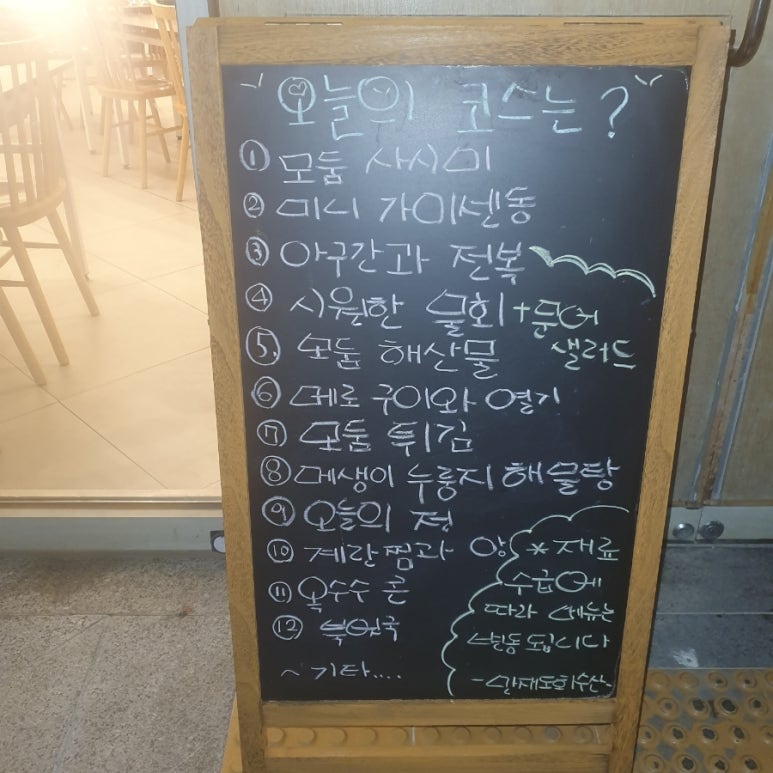 오늘의 코스는?
① 모둠 사시미
② 미니 가이센동
③ 아구간과 전복
④ 시원한 물회+문어
샐러드
⑤. 모둠 해산물
⑥ 메로 구이와 열기
⑦ 모둠 튀김
⑧ 메생이 누룽지 해물탕
⑨ 오늘의 전
⑩ 계란찜과 알
⑪ 옥수수 콘
⑫ 북어국
~ 기타....
* 재료
수급에
따라 메뉴는
변동됩니다
-만재도회수산-